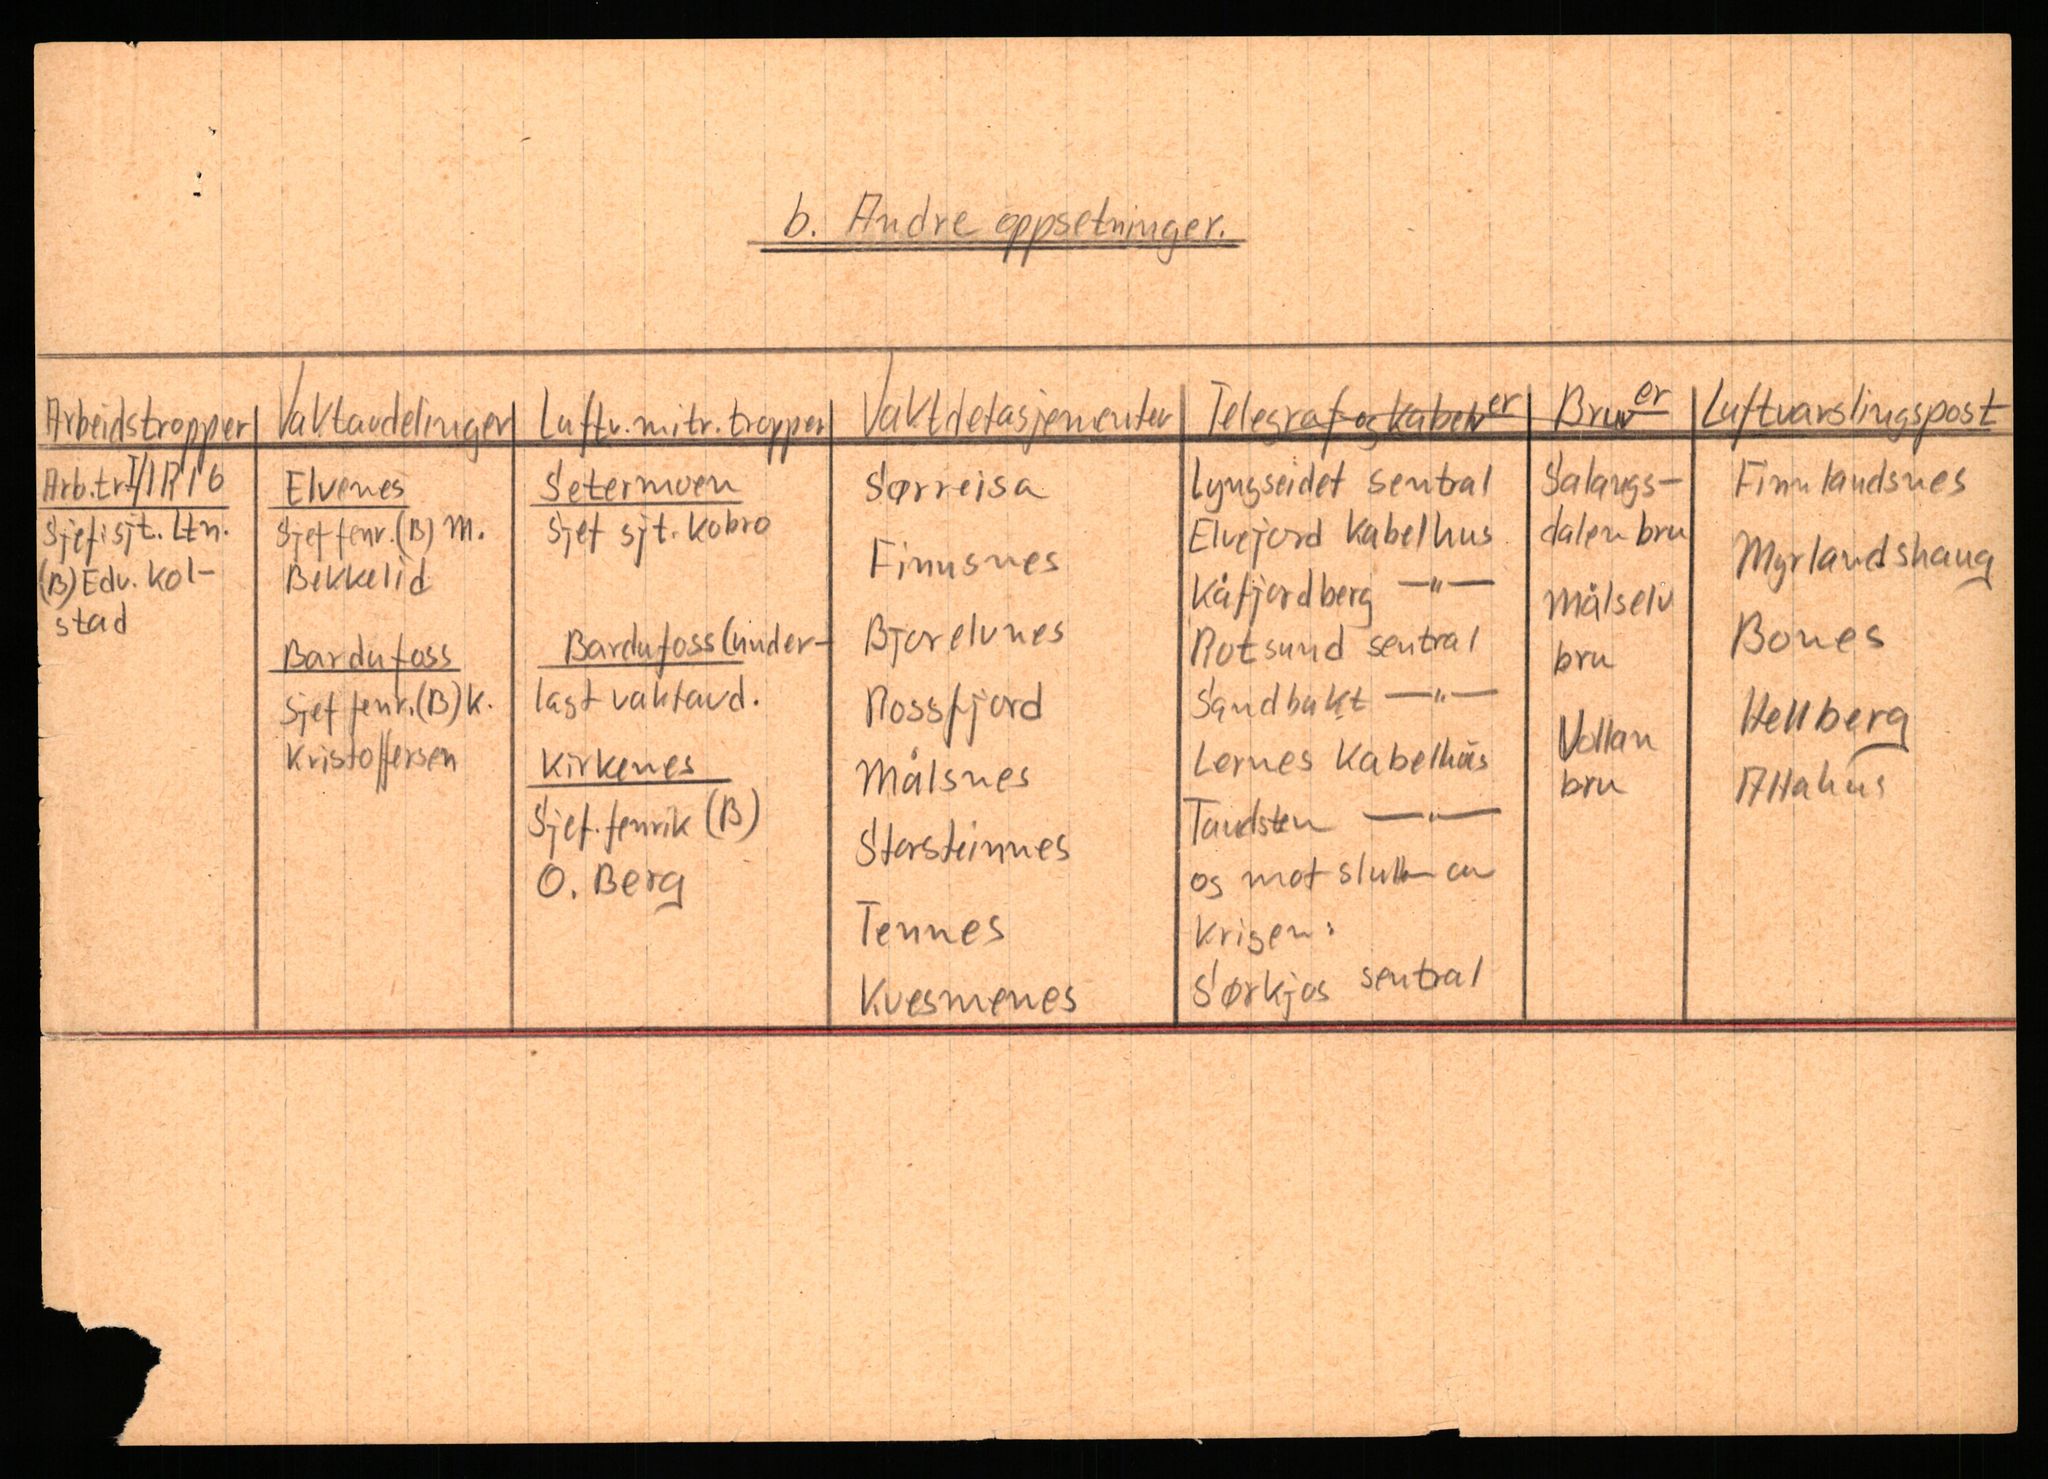 b. Andre oppsetninger.
Arbeidstropper
Arb.tr.I/IR16
Sjef: sjt. Ltn.
(B) Edv. Kol-
stad
Vaktavdelinger
Elvenes
Sjef fenr. (B) M.
Bekkelid
Bardufoss
Sjef fenr. (B) K.
Kristoffersen
Luftv. mitr. tropper
Setermoen
Sjef sjt. Kobro
Bardufoss (under-
lagt vaktavd.
Kirkenes
Sjef. fenrik (B)
O. Berg
Vaktdetasjementer
Sørreisa
Finnsnes
Bjorelvnes
Rossfjord
Målsnes
Storsteinnes
Tennes
Kvesmenes
Telegraf og kabel er
Lyngseidet sentral
Elvejord Kabelhus
Kåfjordberg —"—
Rotsund sentral
Sandbukt —"—
Lernes Kabelhus
—"—
og mot slutten av
krigen:
Sørkjos sentral
Bruer
Salangs-
dalen bru
Målselv
bru
Vollan
bru
Luftvarslingspost
Finnlandsnes
Myrlandshaug
Bones
Hellberg